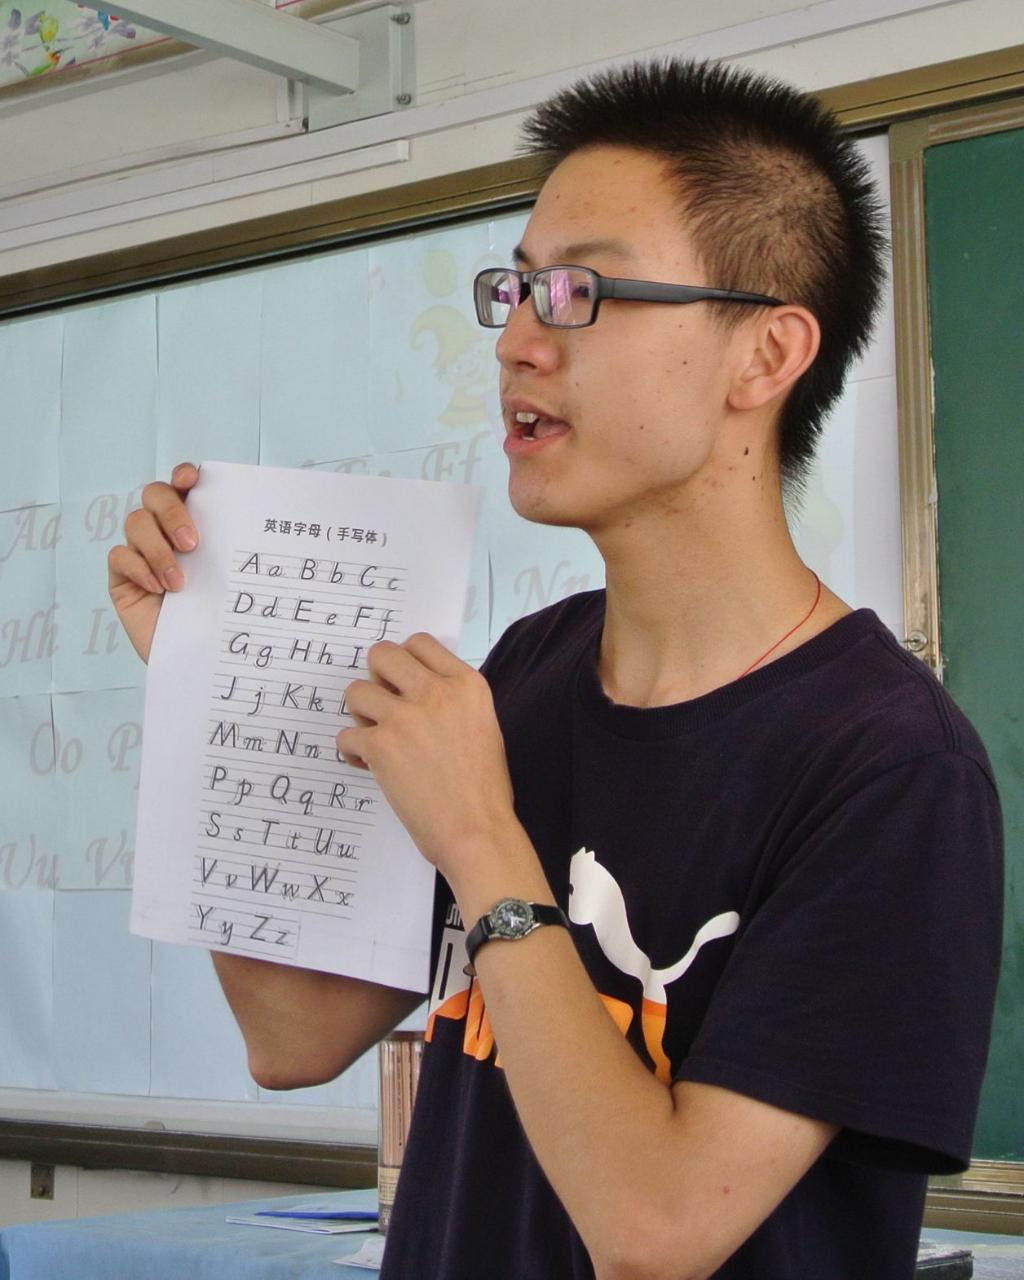 英语字母（手写体）
A a B b C c
D d E e F f
G g H h I
J j K k L
M m N n
P p Q q R r
S s T t U u
V v W w X x
Y y Z z
Aa Bb Ff
Hh Ii Nn
Oo P
Uu Vv